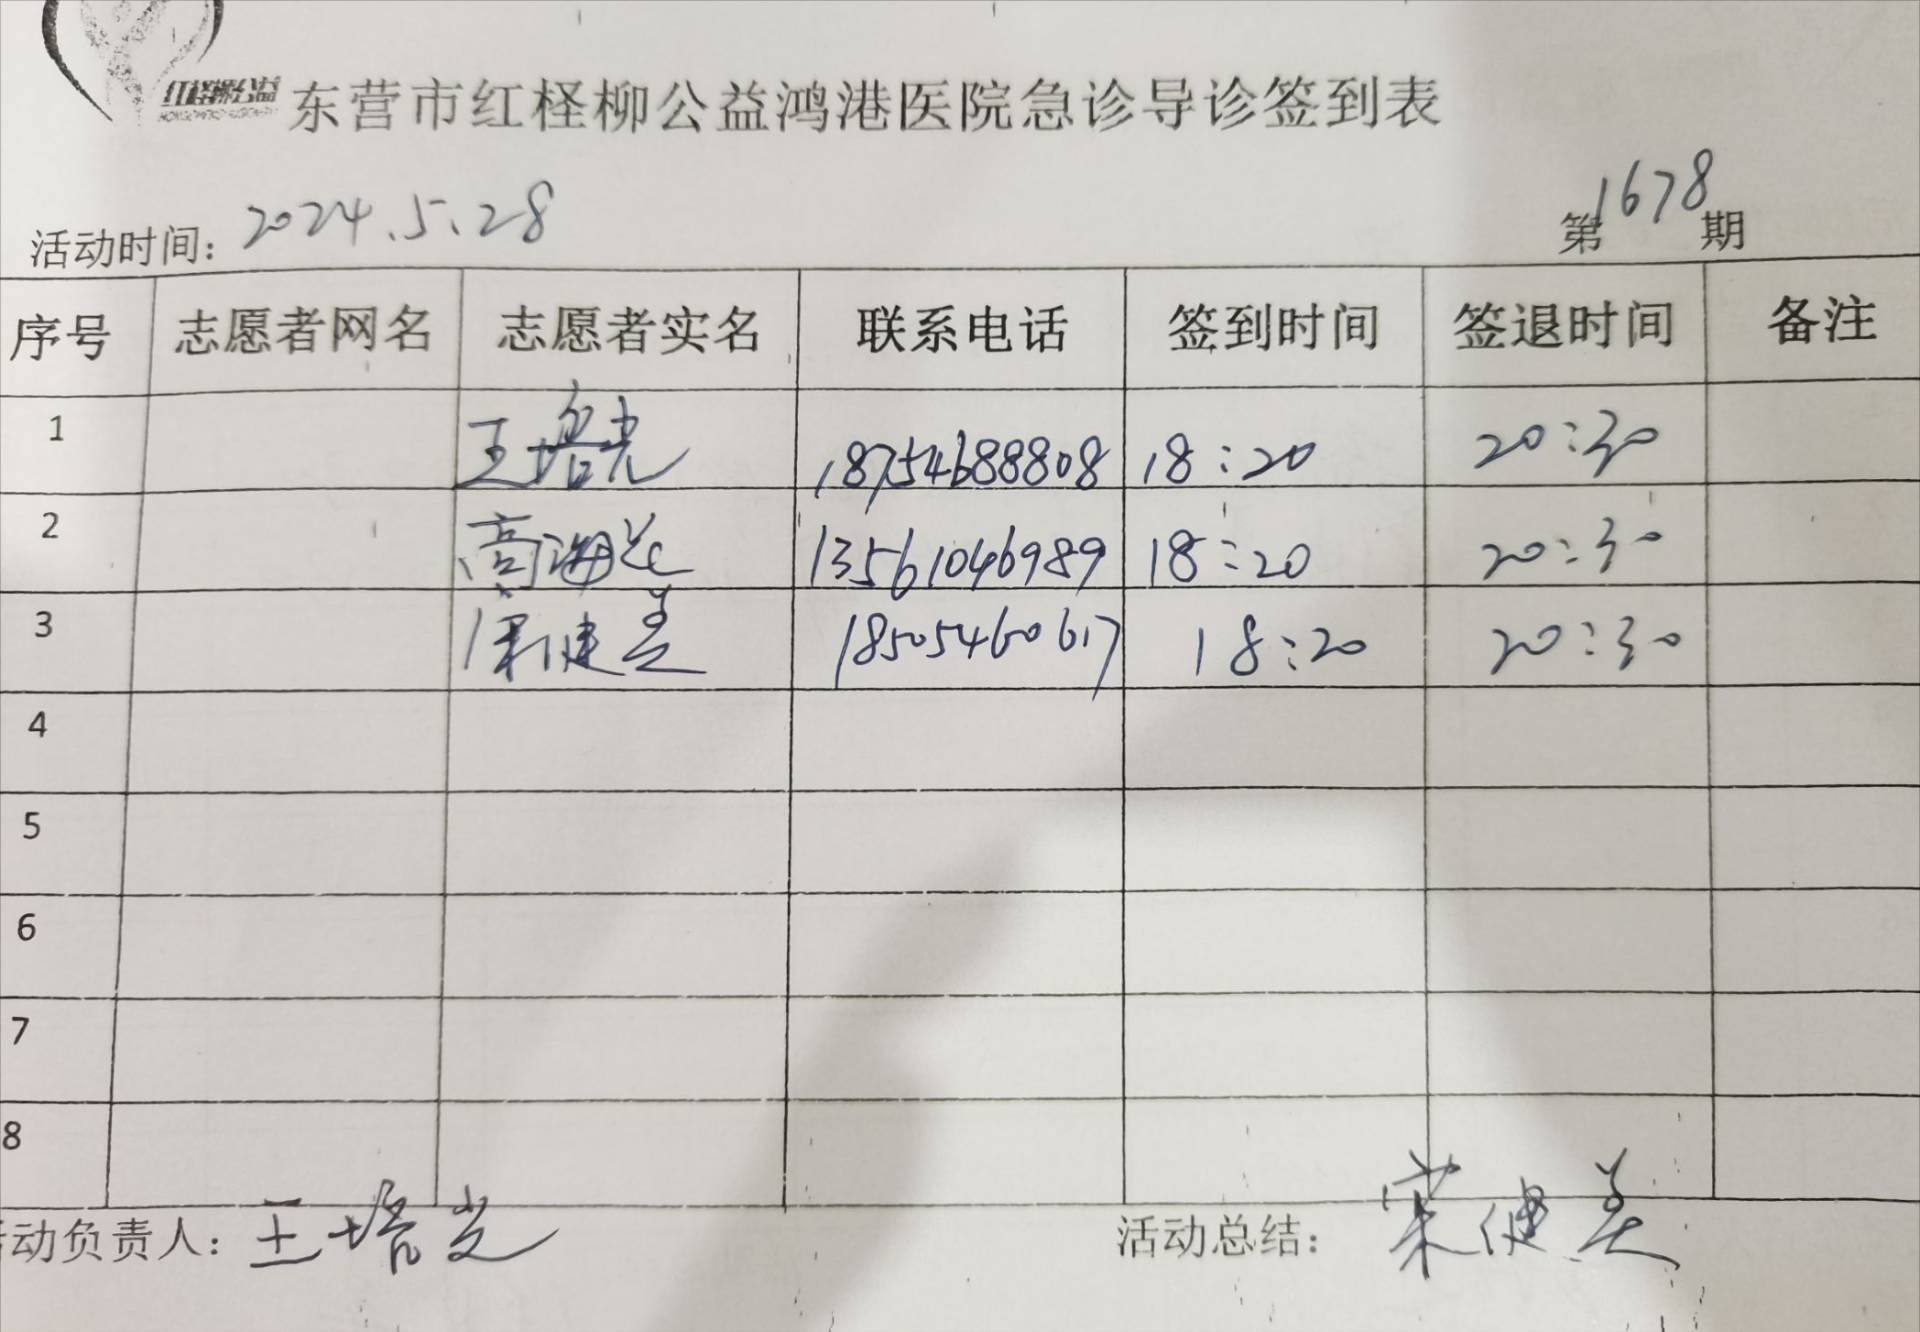 红柽柳公益 东营市红柽柳公益鸿港医院急诊导诊签到表
活动时间：2024.5.28 第1678期
序号 志愿者网名 志愿者实名 联系电话 签到时间 签退时间 备注
1 王培光 18754688808 18:20 20:30
2 高海 13561046989 18:20 20:30
3 健美 18505460617 18:20 20:30
4
5
6
7
8
活动负责人：王培光 活动总结：健美